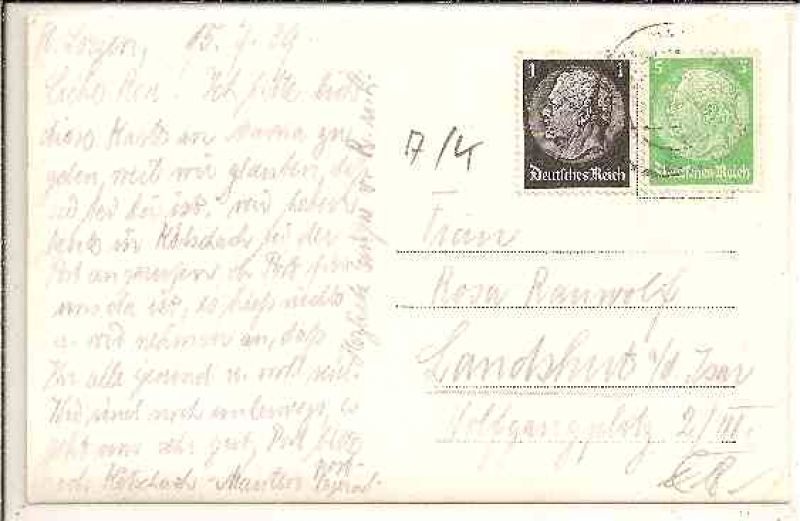 St. Lorenzen, 15.7.39.
Liebe Resi. Ich bitte dich
diese Karte an Mama zu
geben, weil wir glauben, daß
sie bei dir ist. Wir haben
heute in Kötschach bei der
Post ob Post für
uns da ist, es hieß nichts
u. wir nehmen an, daß
Ihr alle gesund u. wohl seid.
Wir sind noch unterwegs, es
geht uns sehr gut, Post bitte
nach Kötschach-Mauthen postlagernd.
7/4
1 1
Deutsches Reich
5 5
Deutsches Reich
Frau
Rosa Rauwolf
Landshut a/d Isar
Wolfgangplatz 2/III.